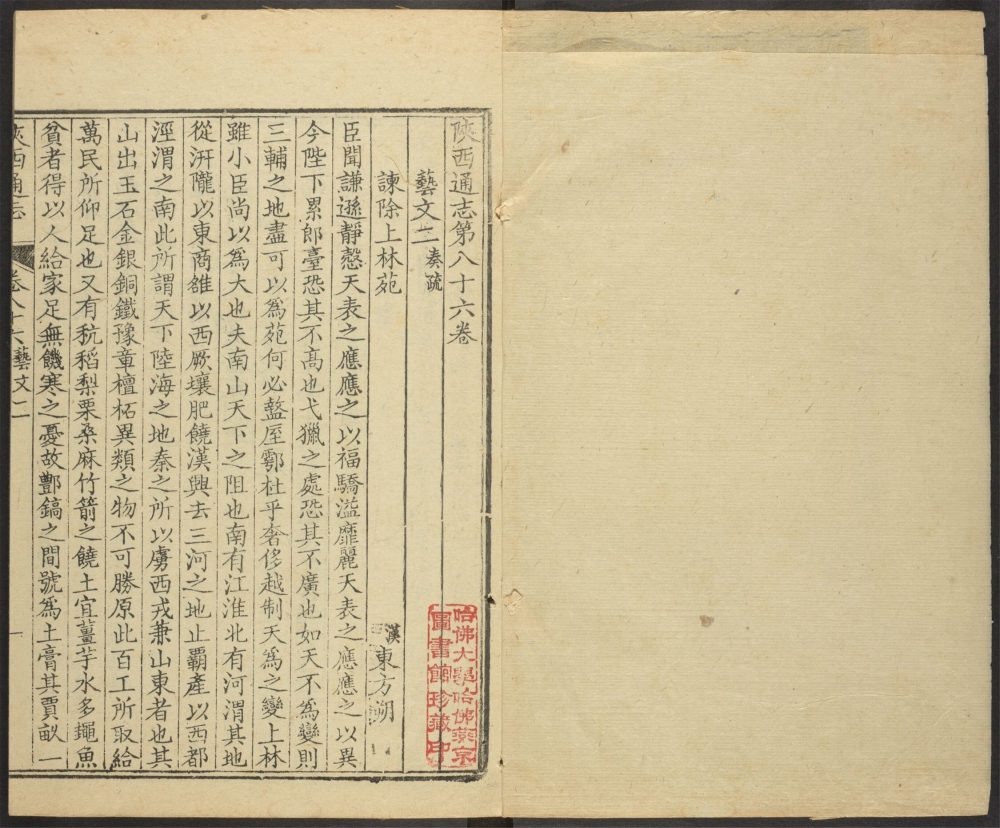 陝西通志第八十六卷
藝文二奏疏
諫除上林苑
漢東方朔
臣聞謙遜靜慤天表之應應之以福驕溢靡麗天表之應應之以異
今陛下累郎臺恐其不高也弋獵之處恐其不廣也如天不為變則
三輔之地盡可以為苑何必盩厔鄠杜乎奢侈越制天為之變上林
雖小臣尚以為大也夫南山天下之阻也南有江淮北有河渭其地
從汧隴以東商雒以西厥壤肥饒漢興去三河之地止霸產以西都
涇渭之南此所謂天下陸海之地秦之所以虜西戎兼山東者也其
山出玉石金銀銅鐵豫章檀柘異類之物不可勝原此百工所取給
萬民所仰足也又有秔稻梨栗桑麻竹箭之饒土宜薑芋水多鼃魚
貧者得以人給家足無饑寒之憂故酆鎬之間號為土膏其賈畝一
陝西通志
卷八十六藝文二
一
哈佛大學哈佛燕京
圖書館珍藏印